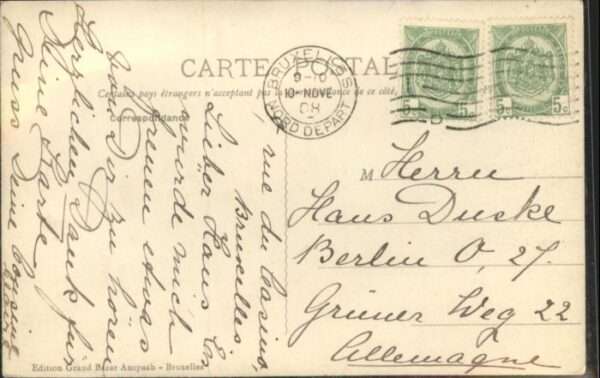 CARTE POSTALE
Certains pays étrangers n'acceptent pas la correspondance de ce côté,
Correspondance
BRUXELLES
9-10
10 NOVE
08
NORD DEPART
5c 5c
5c 5c
M Herrn
Hans Duske
Berlin O, 27.
Grüner Weg 22
Allemagne
rue du Casino,
Bruxelles
Lieber Hans Es
würde mich
freuen etwas
von Dir zu hören
Herzlichen Dank für
Deine Karte
Gruss Deine Cousine
Edition Grand Bazar Anspach - Bruxelles